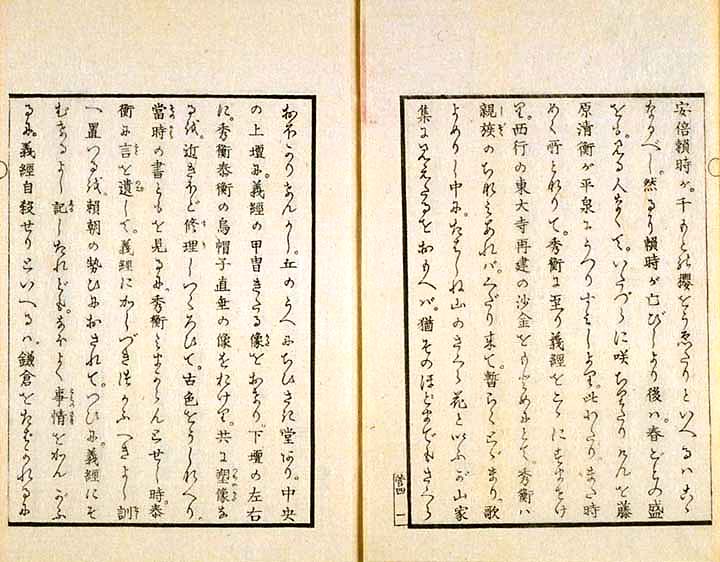 安倍頼時が。千もとの櫻をうゑたりといへるハこゝ
なるべし。然るに頼時が亡びしより後ハ。春ごとの盛
をも。見る人なくて。いたづらに咲ちりたりけんを藤
原清衡が平泉にうつりすみしより。此わたり。また時
めく所となりて。秀衡に至り義經をこゝにすませけ
り。西行の東大寺再建の沙金をもとめにとて。秀衡ハ
親族のちなみあれバ。くだり來て。暫らくとゞまり。歌
よめりし中に。たばしね山のさくら花といふが山家
集に見えたるをおもへバ。猶そのほどまでもさくら
菅四 一
おほかりけんかし。丘のうへにちひさき堂あり。中央
の上壇に。義經の甲冑きたる像をおき。下壇の左右
に。秀衡泰衡の烏帽子直垂の像をおけり。共に塑像な
るを。近きほど修理しつくろひて。古色をうしなへり。
當時の書どもを見るに。秀衡みまからんとせし時。泰
衡に言を遺して。義經にかしづきつかふべきよし訓
へ置つるを。頼朝の勢ひにおされて。つひに。義經にそ
むきたるよし記したれども。なほよく事情をかんがふ
るに。義經自殺せりといへるハ。鎌倉をたばかれるに